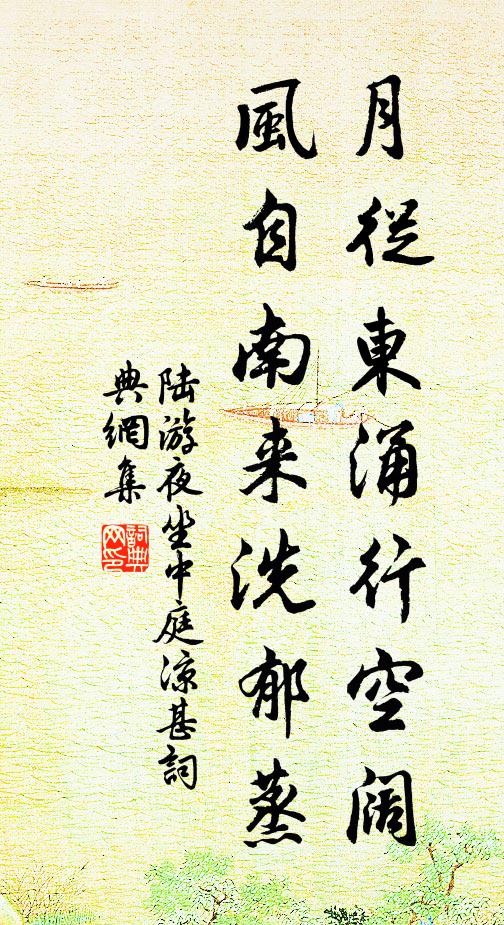 月從東涌行空阔
風自南来洗郁蒸
陆游夜坐中庭凉甚詞
典網集
詞典网印